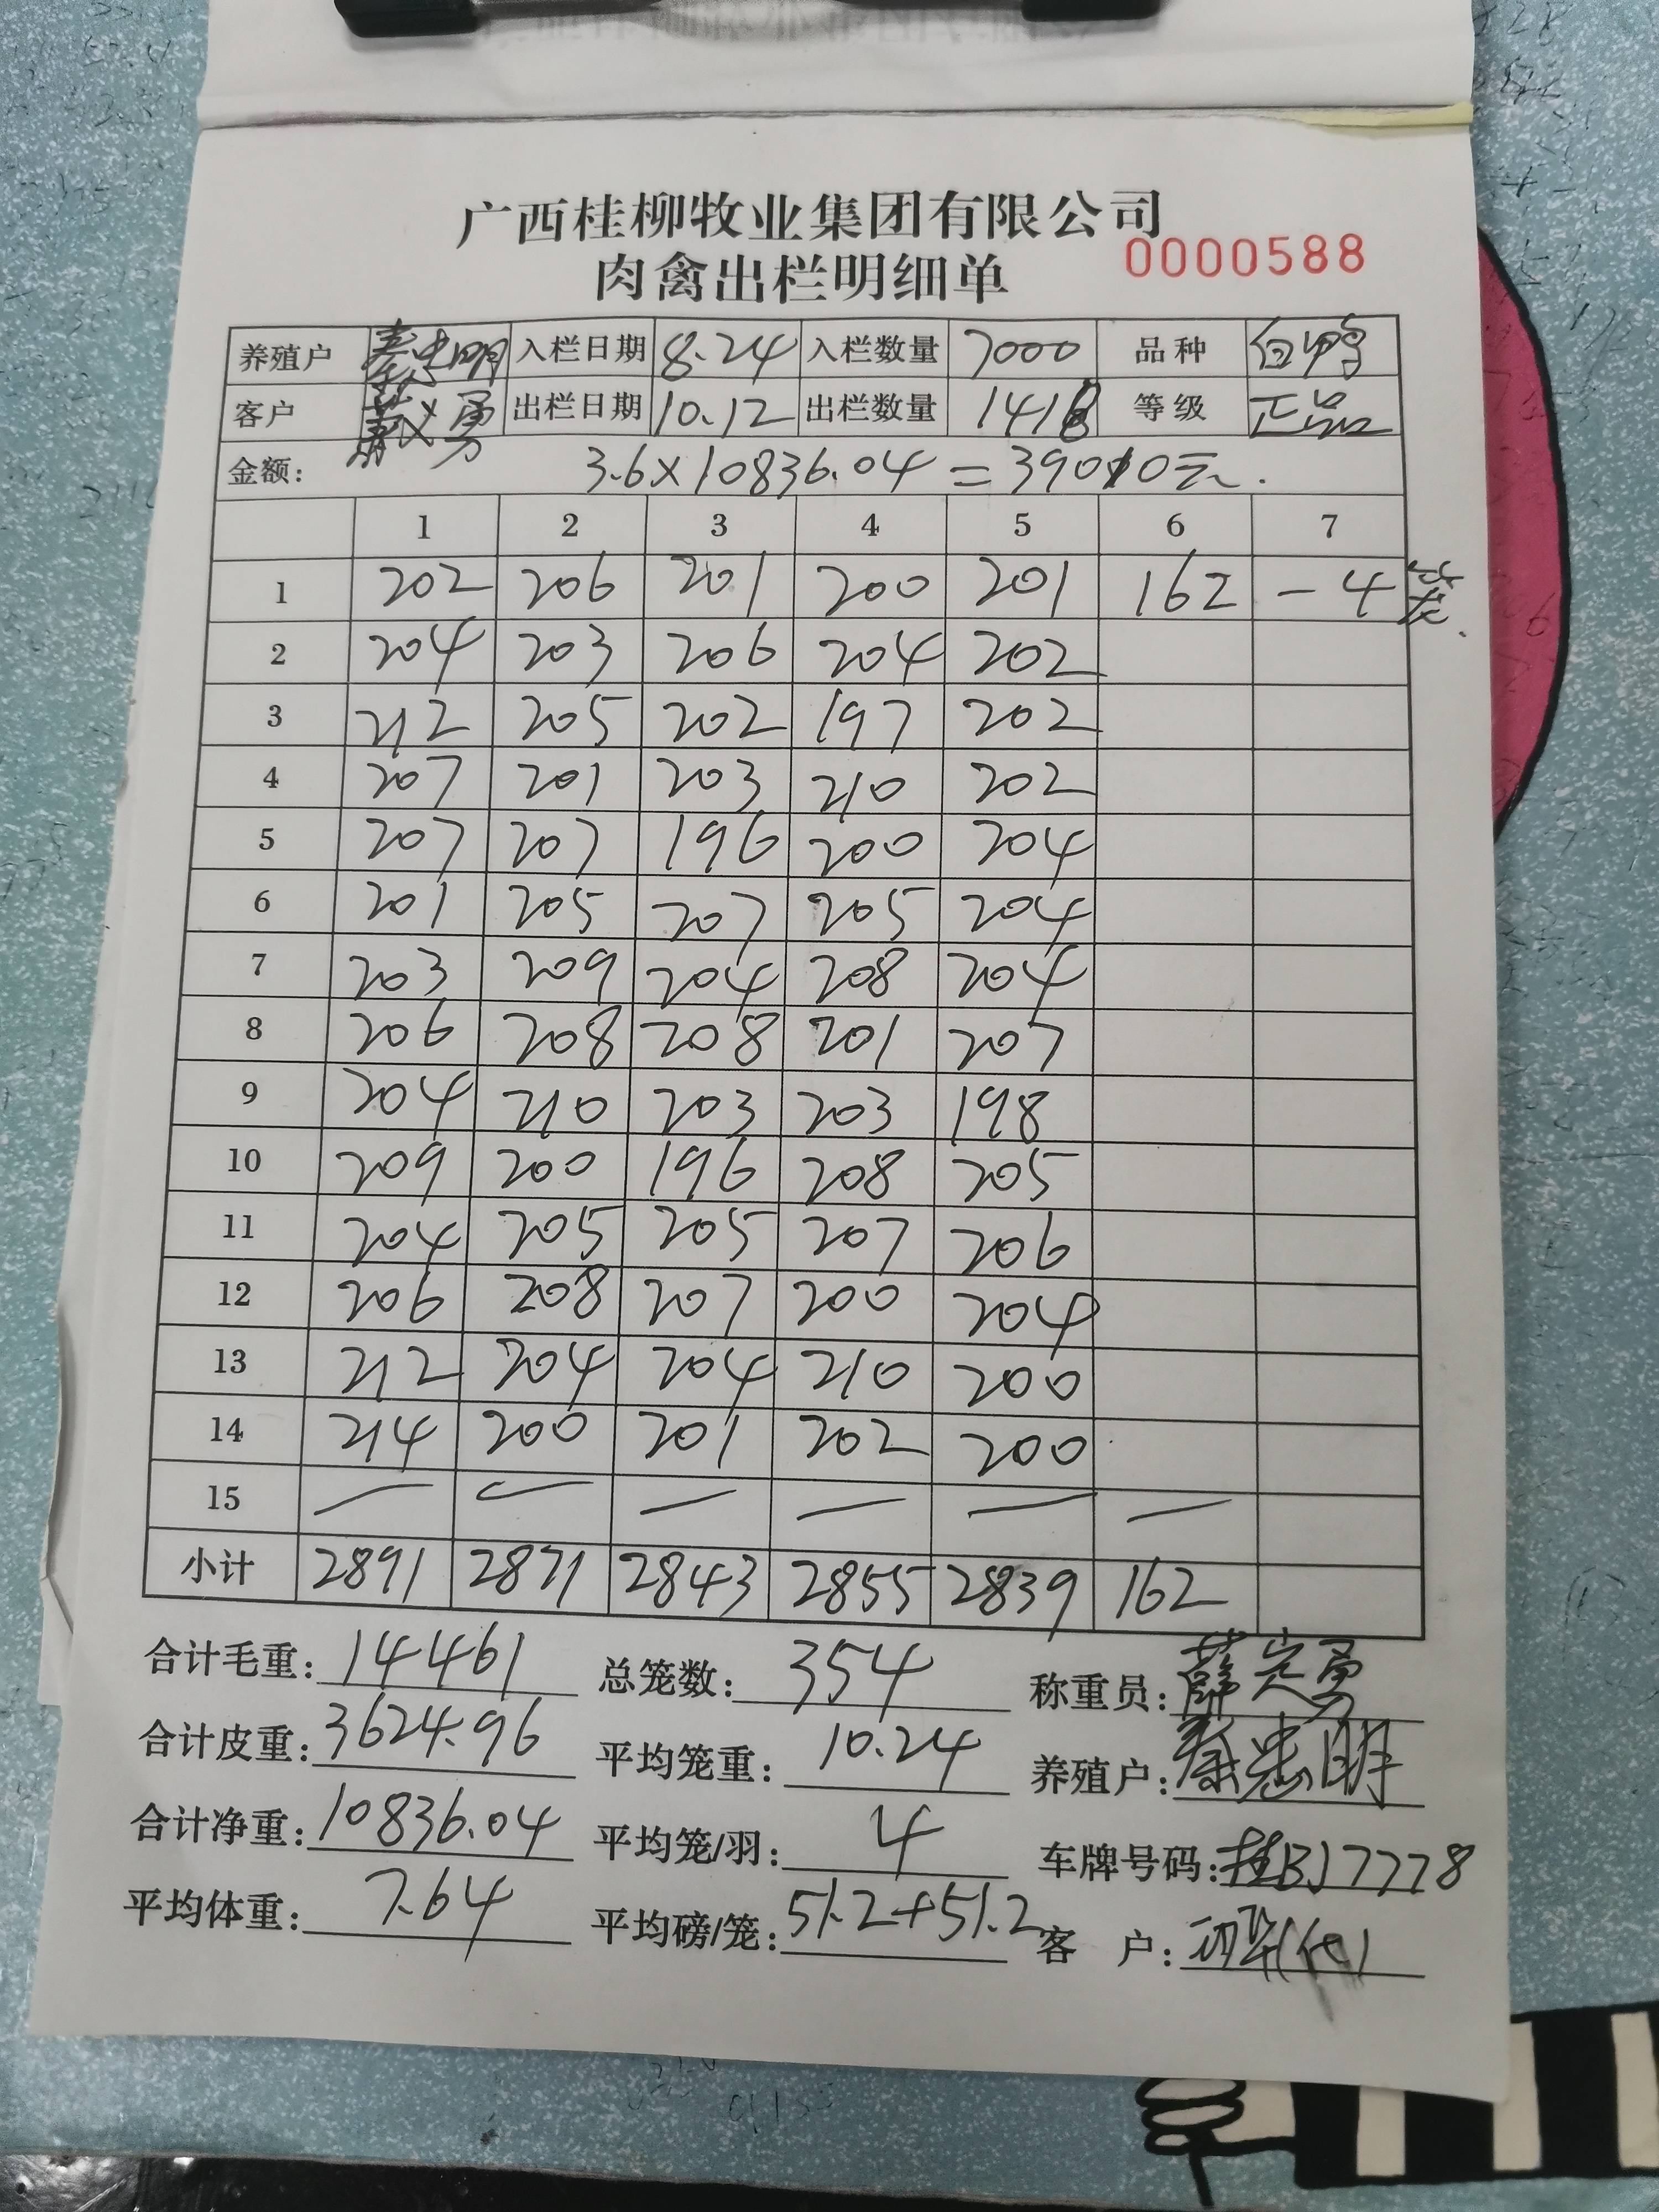 广西桂柳牧业集团有限公司
肉禽出栏明细单 0000588
养殖户 秦忠明 入栏日期 8.24 入栏数量 7000 品种 白鸭
客户 戴义勇 出栏日期 10.12 出栏数量 1418 等级 正品
金额: 3.6×10836.04=39010元.
1 2 3 4 5 6 7
1 202 206 201 200 201 162 -4笼.
2 204 203 206 204 202
3 212 205 202 197 202
4 207 201 203 210 202
5 207 207 196 200 204
6 201 205 207 205 204
7 203 209 204 208 204
8 206 208 208 201 207
9 204 210 203 203 198
10 209 200 196 208 205
11 204 205 205 207 206
12 206 208 207 200 204
13 212 204 204 210 200
14 214 200 201 202 200
15 — — — — — —
小计 2891 2871 2843 2855 2839 162
合计毛重: 14461 总笼数: 354 称重员: 薛定勇
合计皮重: 3624.96 平均笼重: 10.24 养殖户: 秦忠明
合计净重: 10836.04 平均笼/羽: 4 车牌号码: 桂BJ7778
平均体重: 7.64 平均磅/笼: 51.2+51.2 客 户: (代)